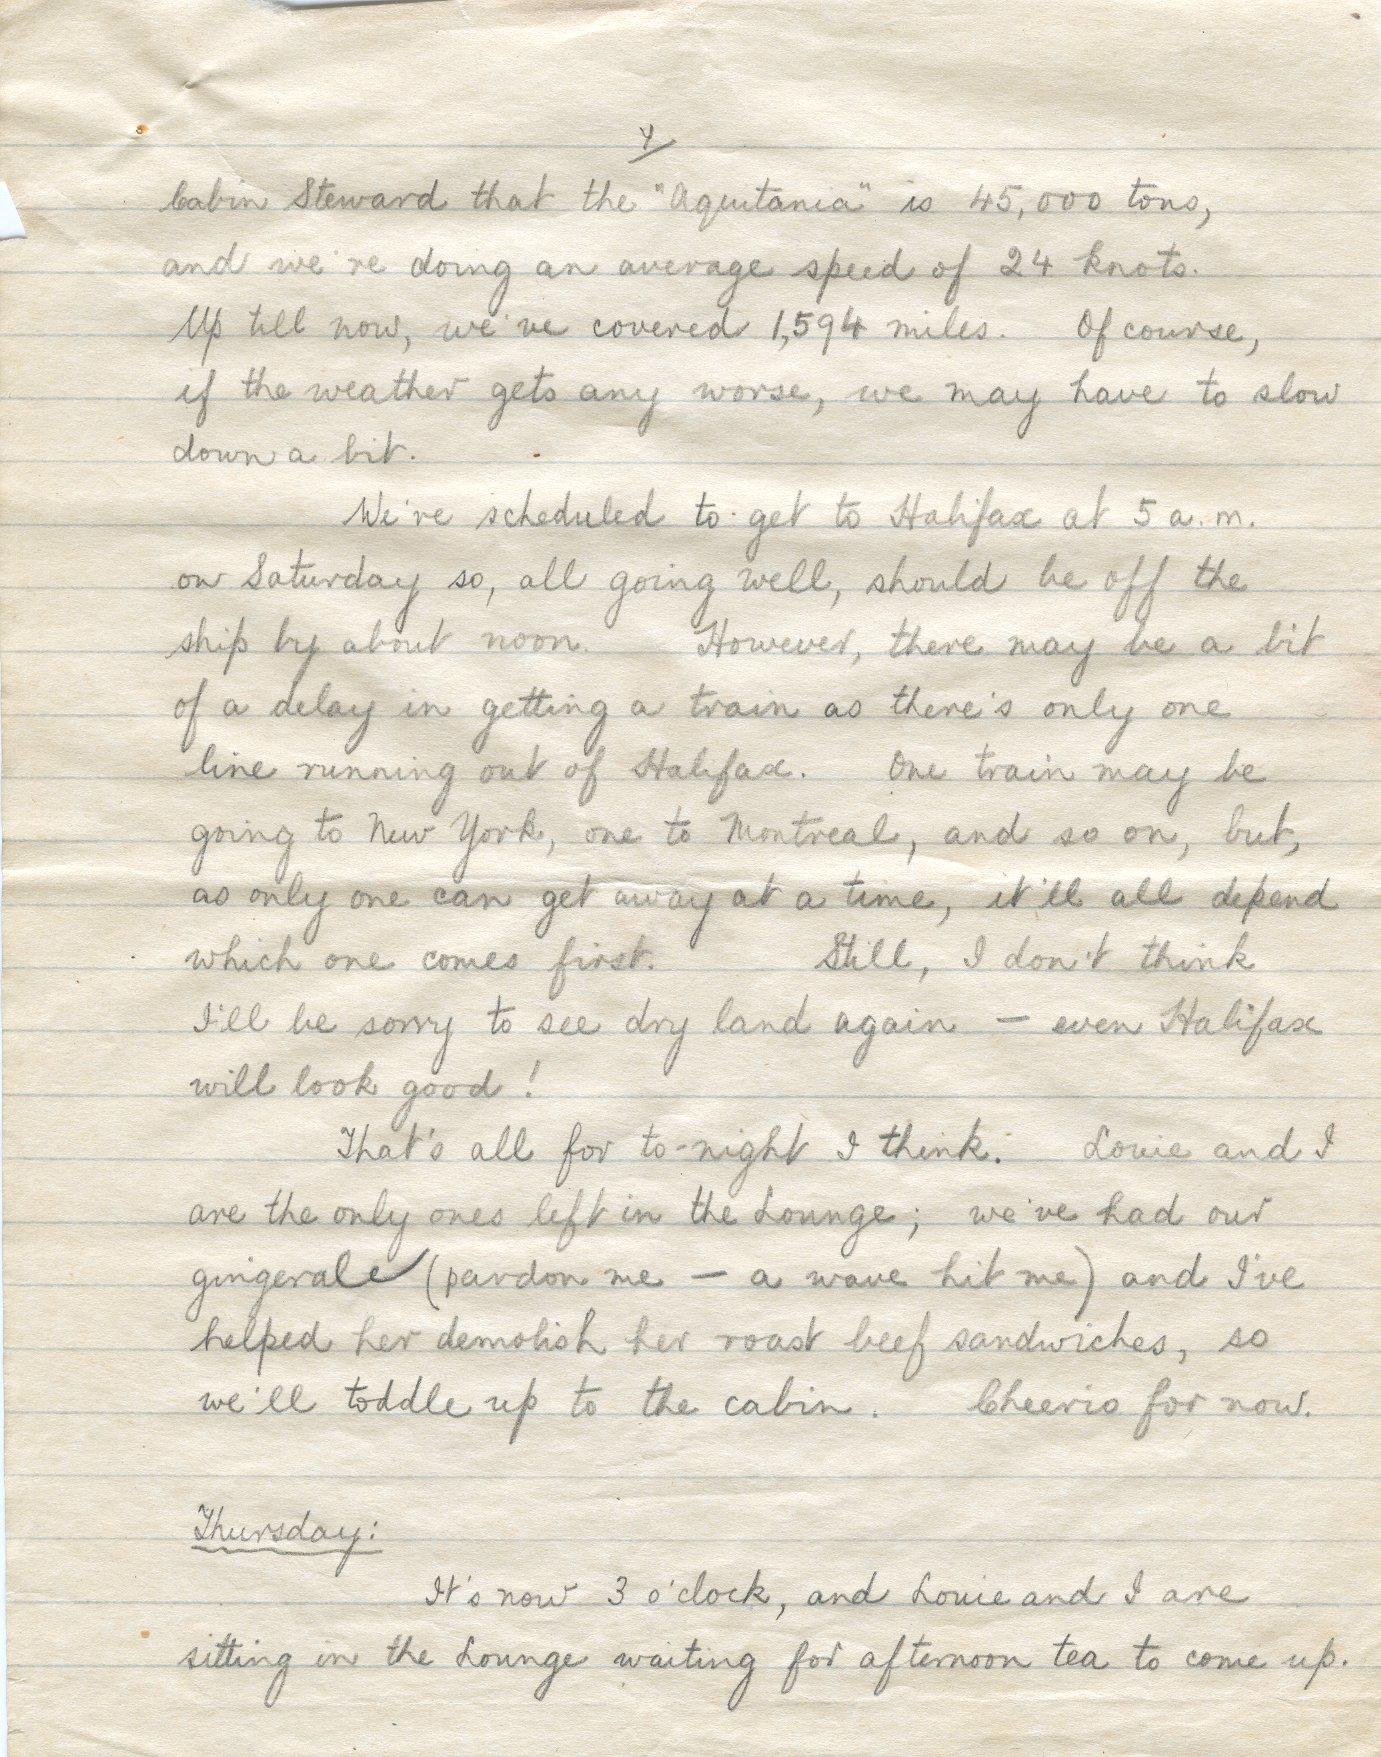 4/
Cabin Steward that the "Aquitania" is 45,000 tons,
and we're doing an average speed of 24 knots.
Up till now, we've covered 1,594 miles. Of course,
if the weather gets any worse, we may have to slow
down a bit.
We're scheduled to get to Halifax at 5 a.m.
on Saturday so, all going well, should be off the
ship by about noon. However, there may be a bit
of a delay in getting a train as there's only one
line running out of Halifax. One train may be
going to New York, one to Montreal, and so on, but,
as only one can get away at a time, it'll all depend
which one comes first. Still, I don't think
I'll be sorry to see dry land again — even Halifax
will look good!
That's all for to-night I think. Louie and I
are the only ones left in the Lounge; we've had our
gingerale (pardon me — a wave hit me) and I've
helped her demolish her roast beef sandwiches, so
we'll toddle up to the cabin. Cheerio for now.
Thursday:
It's now 3 o'clock, and Louie and I are
sitting in the Lounge waiting for afternoon tea to come up.